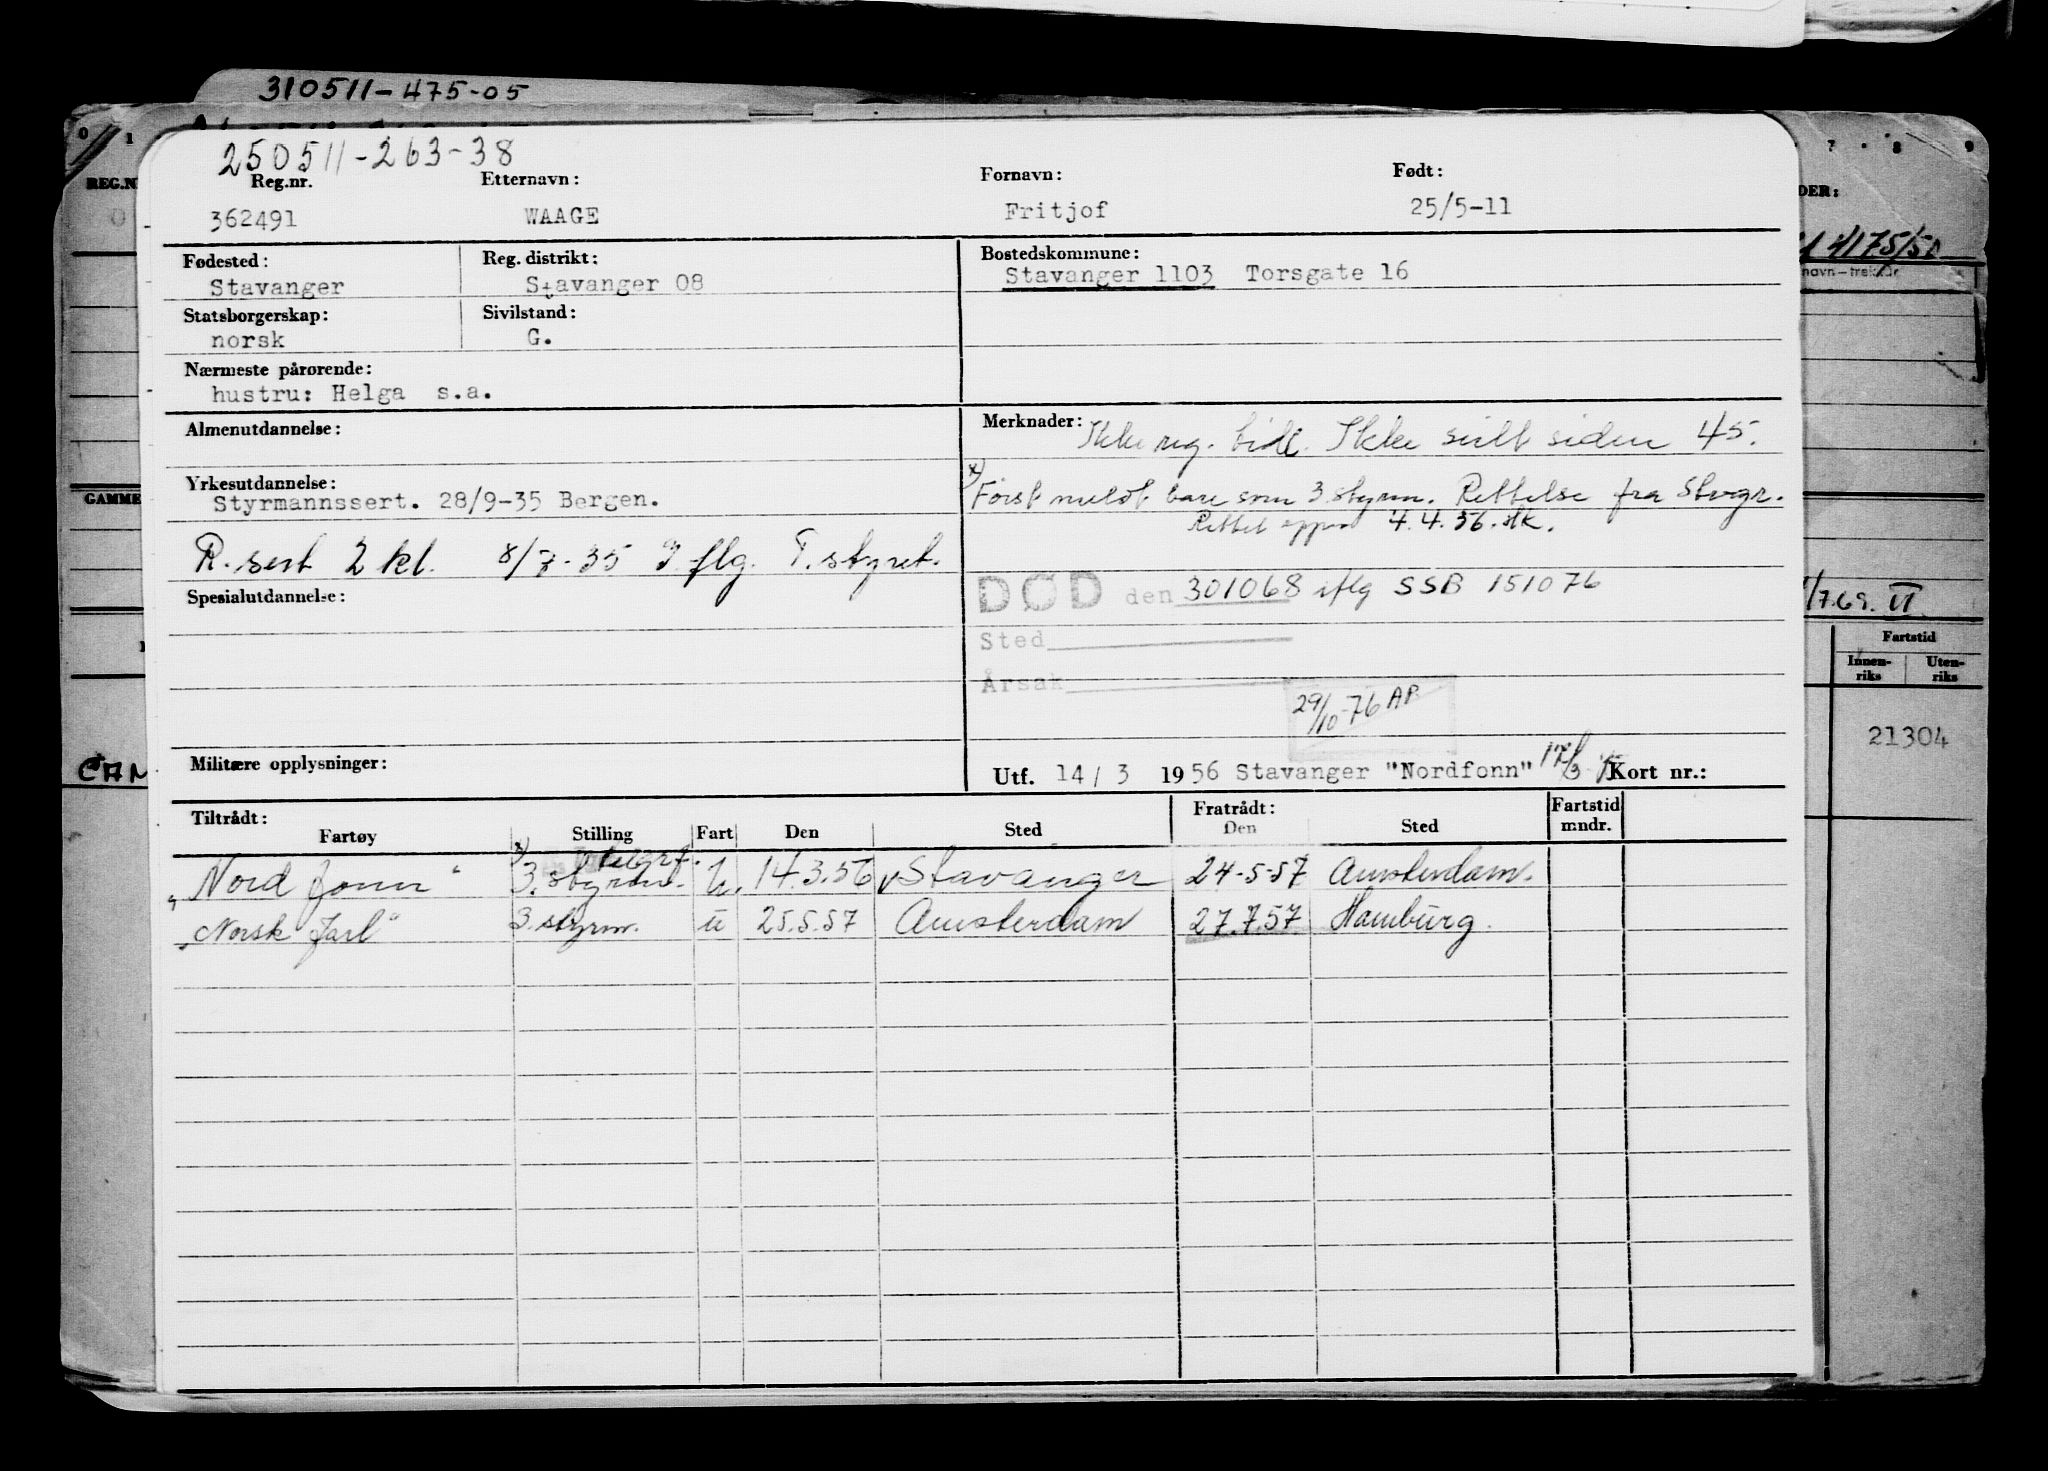 310511-475-05
0 1 7 8 9
250511-263-38
Reg.nr. Etternavn: Fornavn: Født:
362491 WAAGE Fritjof 25/5-11
Fødested: Reg. distrikt: Bostedskommune:
Stavanger Stavanger 08 Stavanger 1103 Torsgate 16
Statsborgerskap: Sivilstand:
norsk G.
Nærmeste pårørende:
hustru: Helga s.a.
Almenutdannelse: Merknader: Ikke reg. tidl. Ikke seilt siden 45.
Yrkesutdannelse: x) Først meldt bare som 3 styrm. Rettelse fra Stvgr.
Styrmannssert. 28/9-35 Bergen. Rettet 4.4.56.
R. sert 2 kl. 8/7-35 I. flg. T. styret.
Spesialutdannelse: DØD den 301068 iflg SSB 151076
Sted
Årsak
29/10-76 AP
Militære opplysninger: Utf. 14/3 1956 Stavanger "Nordfonn" Kort nr.:
Tiltrådt: Fratrådt: Fartstid
Fartøy Stilling Fart Den Sted Den Sted mndr.
"Nord fonn" x) 3. styrm. telegrf. u. 14.3.56 Stavanger 24-5-57 Amsterdam.
"Norsk Jarl" 3. styrm. u 25.5.57 Amsterdam 27.7.57 Hamburg.
REG.N
GAMME
CAN
DER:
4175/51
navn-trekk
/7.69. II
Fartstid
Innen-riks Uten-riks
21304